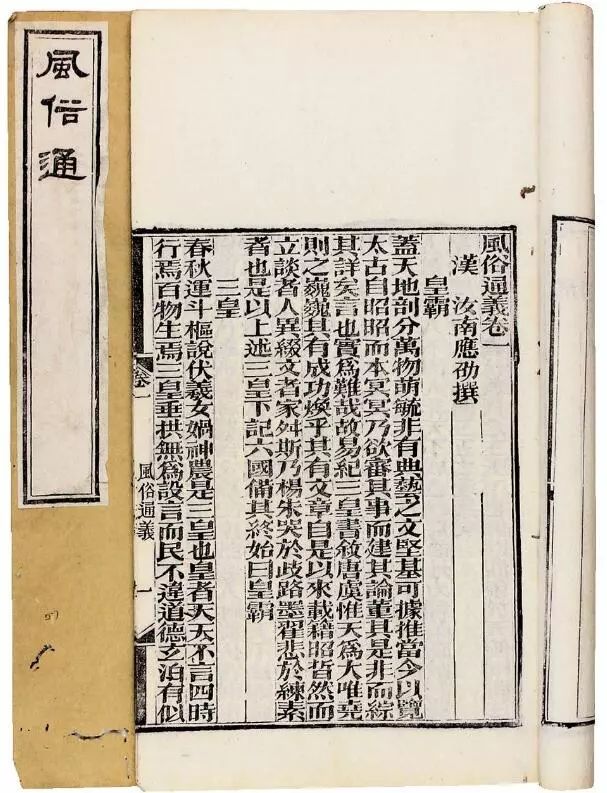 風俗通
風俗通義卷一
漢 汝南應劭撰
皇霸
蓋天地剖分萬物萌毓非有典藝之文堅基可據推當今以覽
太古自昭昭而本冥冥乃欲審其事而建其論董其是非而綜
其詳矣言也實爲難哉故易紀三皇書敘唐虞惟天爲大唯堯
則之巍巍其有成功煥乎其有文章自是以來載籍昭晳然而
立談者人異綴文者家舛斯乃楊朱哭於歧路墨翟悲於練素
者也是以上述三皇下記六國備其終始曰皇霸
三皇
春秋運斗樞說伏羲女媧神農是三皇也皇者天天不言四時
行焉百物生焉三皇垂拱無爲設言而民不違道德玄泊有似
卷一 風俗通義 一